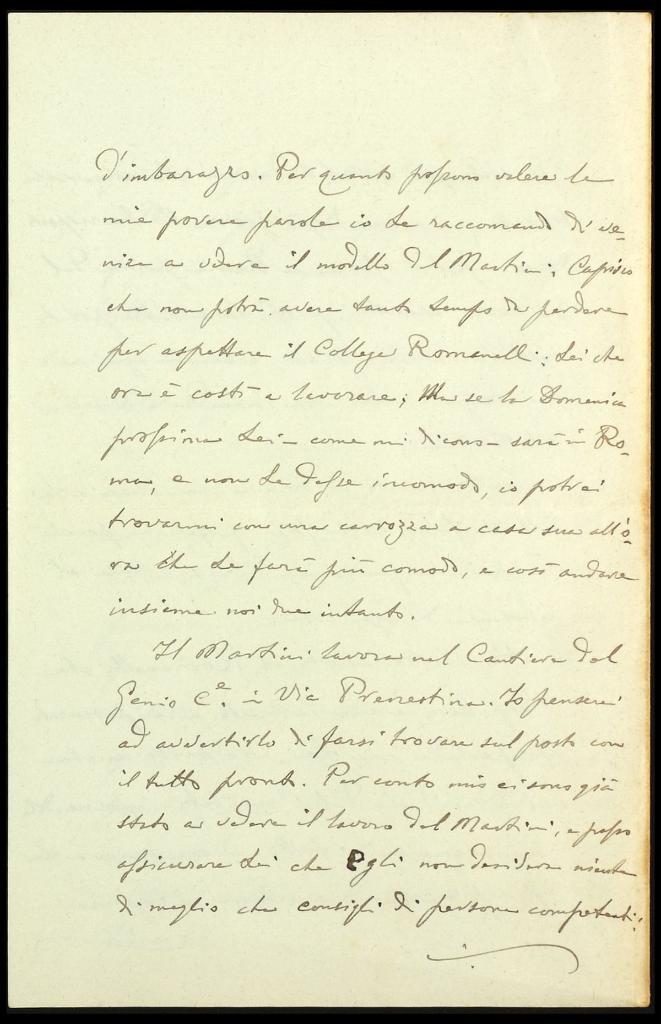 d'imbarazzo. Per quanto possono valere le
mie povere parole io Le raccomando di ve-
nire a vedere il modello del Martini; Capisco
che non potrà avere tanto tempo da perdere
per aspettare il Collega Romanelli: Lei che
ora è costì a lavorare; Ma se la Domenica
prossima Lei - come mi dicono - sarà in Ro-
ma, e non Le desse incomodo, io potrei
trovarmi con una carrozza a casa sua all'o-
ra che Le farà più comodo, e così andare
insieme noi due intanto.
Il Martini lavora nel Cantiere del
Genio C.e in Via Prenestina. Io penserei
ad avvertirlo di farsi trovare sul posto con
il tutto pronto. Per conto mio ci sono già
stato a vedere il lavoro del Martini, e posso
assicurare Lei che Egli non desidera niente
di meglio che consigli di persone competenti!